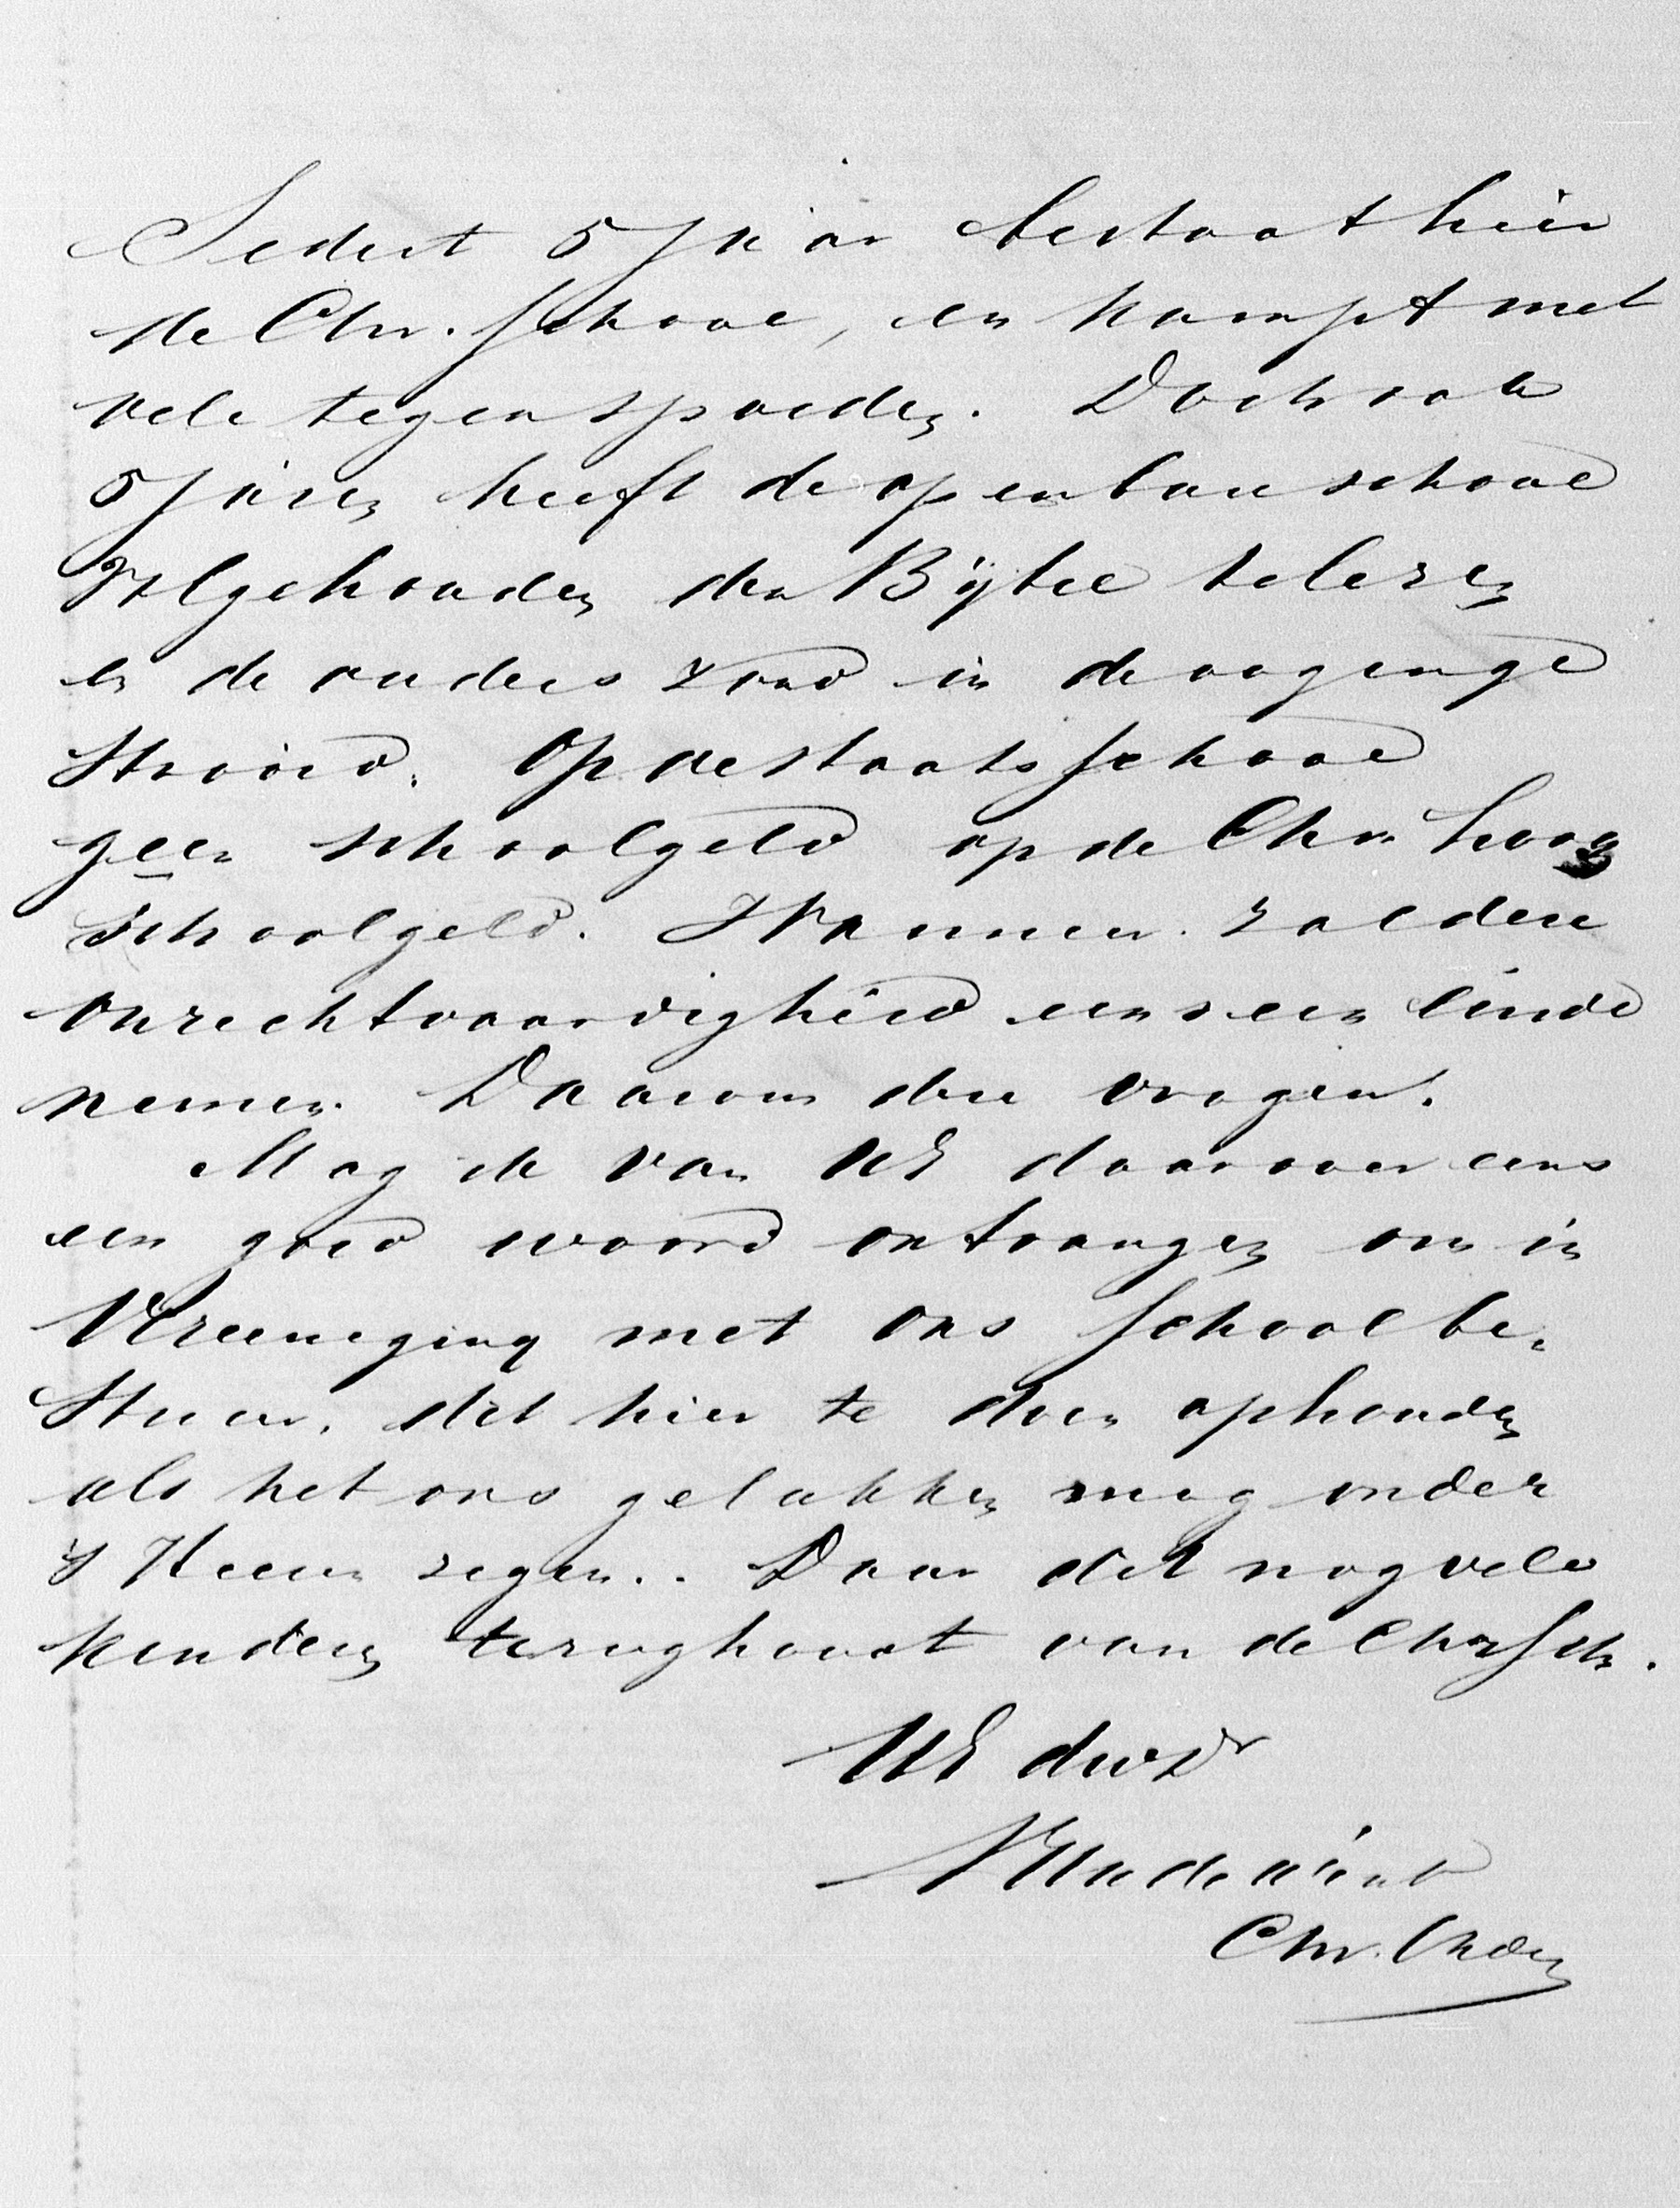 Sedert 5 jaar bestaat hier
de Chr. school, en kampt met
vele tegenspoeden. Doch ook
5 jaren heeft de openbare school
volgehouden den Bijbel te lezen
en de ouders zand in de oogen ge
strooid. Op de staatsschool
geen schoolgeld op de Chr. hoog
schoolgeld. Wanneer zal deze
onrechtvaardigheid eens een einde
nemen. Daarom deze vragen.
Mag ik van UE daarover eens
een goed woord ontvangen om in
Vereeniging met ons schoolbe-
stuur, dit hier te doen ophouden
als het ons gelukken mag onder
's Heeren zegen.. Daar dit nog vele
kinderen terughoudt van de Chr Sch.
UE dwdr
Chr. Onder